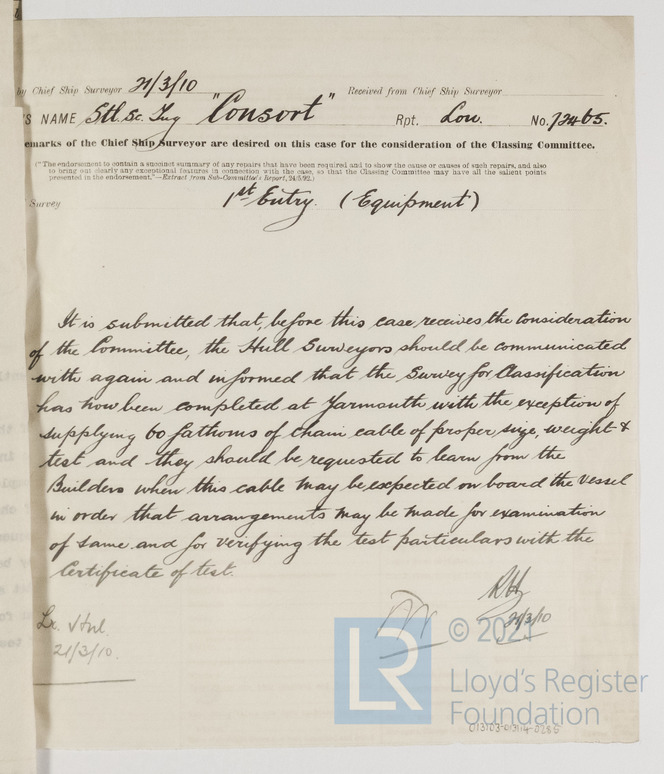 by Chief Ship Surveyor 21/3/10 Received from Chief Ship Surveyor
'S NAME Stl. Sc. Tug "Consort" Rpt. Lon. No. 72465.
emarks of the Chief Ship Surveyor are desired on this case for the consideration of the Classing Committee.
("The endorsement to contain a succinct summary of any repairs that have been required and to show the cause or causes of such repairs, and also
to bring out clearly any exceptional features in connection with the case, so that the Classing Committee may have all the salient points
presented in the endorsement."—Extract from Sub-Committee's Report, 24/5/92.)
Survey 1st Entry. (Equipment)
It is submitted that, before this case, receives the consideration
of the Committee, the Hull Surveyors should be communicated
with again and informed that the Survey for Classification
has now been completed at Yarmouth with the exception of
supplying 60 fathoms of chain cable of proper size, weight &
test and they should be requested to learn from the
Builders when this cable may be expected on board the vessel
in order that arrangements may be made for examination
of same and for verifying the test particulars with the
Certificate of test.
21/3/10
Lr. Hul.
21/3/10.
© 2021
LR
Lloyd's Register
Foundation